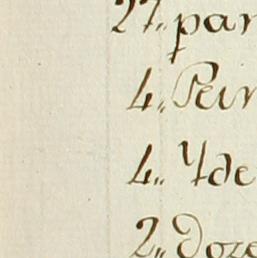 27., par
4., Pein
4., Yde
2., Doze